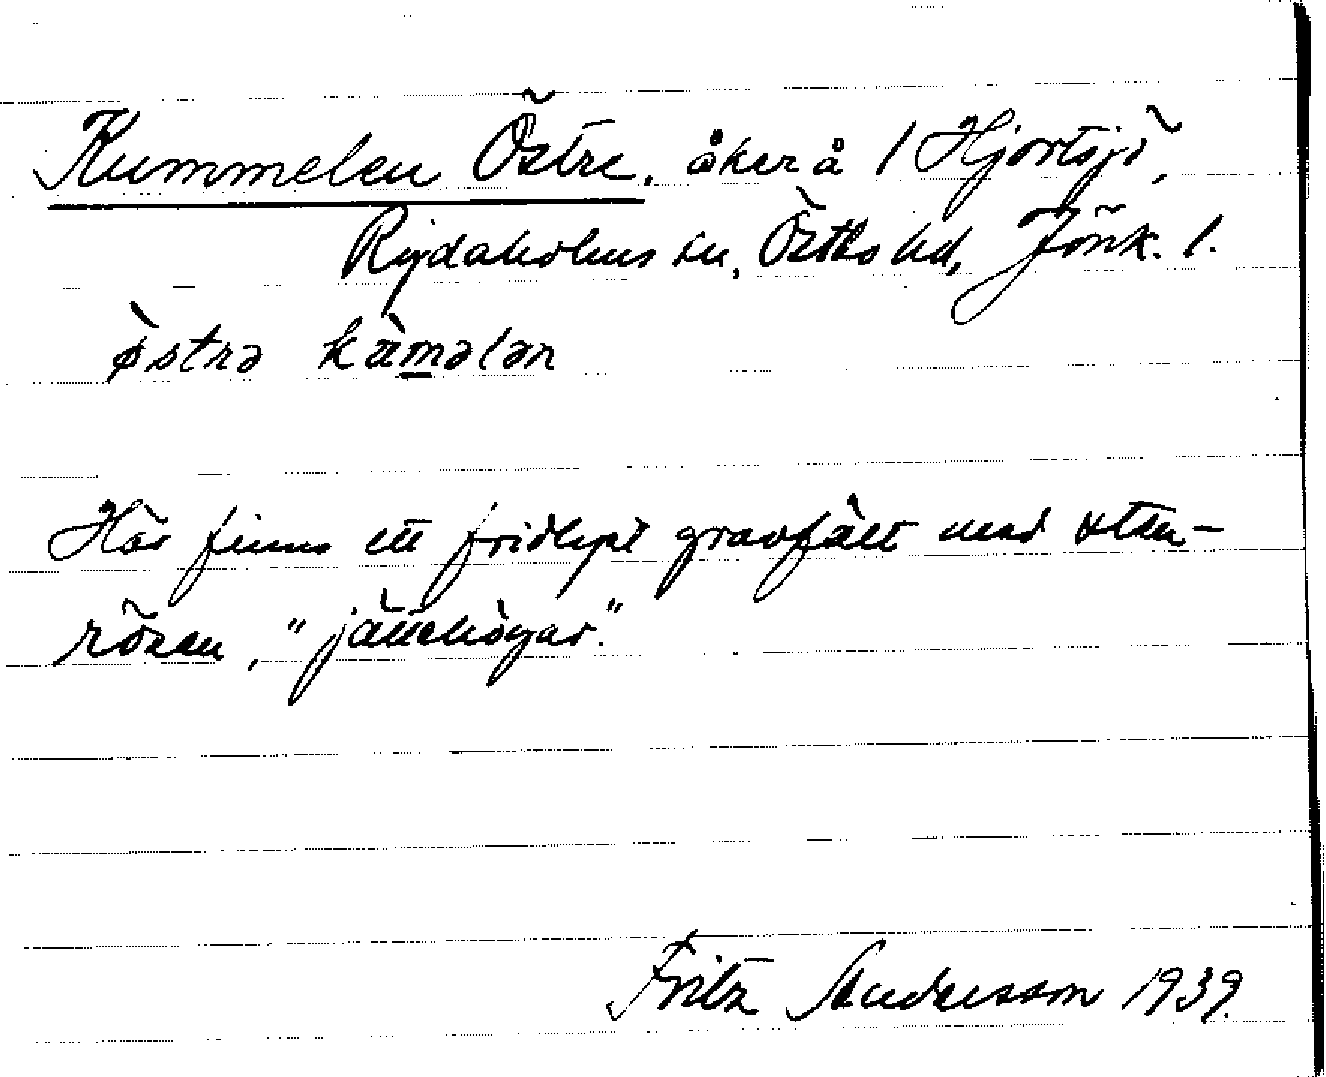 Kummelen Östre, åker å 1 Hjortsjö,
Rydaholms sn, Östbo hd, Jönk. l.
östrə kàmələn
Här finns ett fridlyst gravfält med sten-
rösen, "jättehögar."
Fritz Andersson 1939.